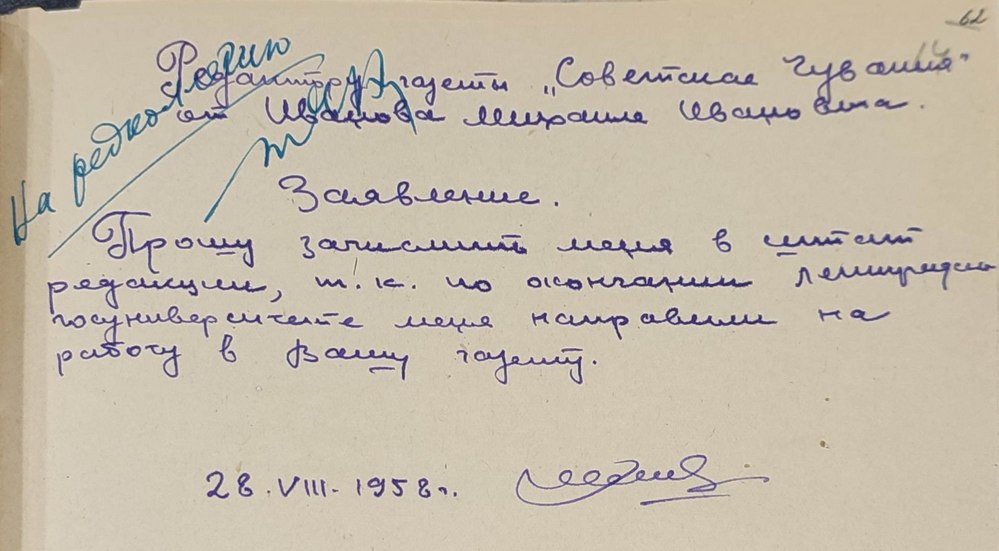 62
На редколлегию
Редактору газеты „Советская Чувашия"
от Иванова Михаила Ивановича.
Заявление.
Прошу зачислить меня в штат
редакции, т.к. по окончании Ленинградск.
госуниверситета меня направили на
работу в Вашу газету.
28.VIII.1958г.